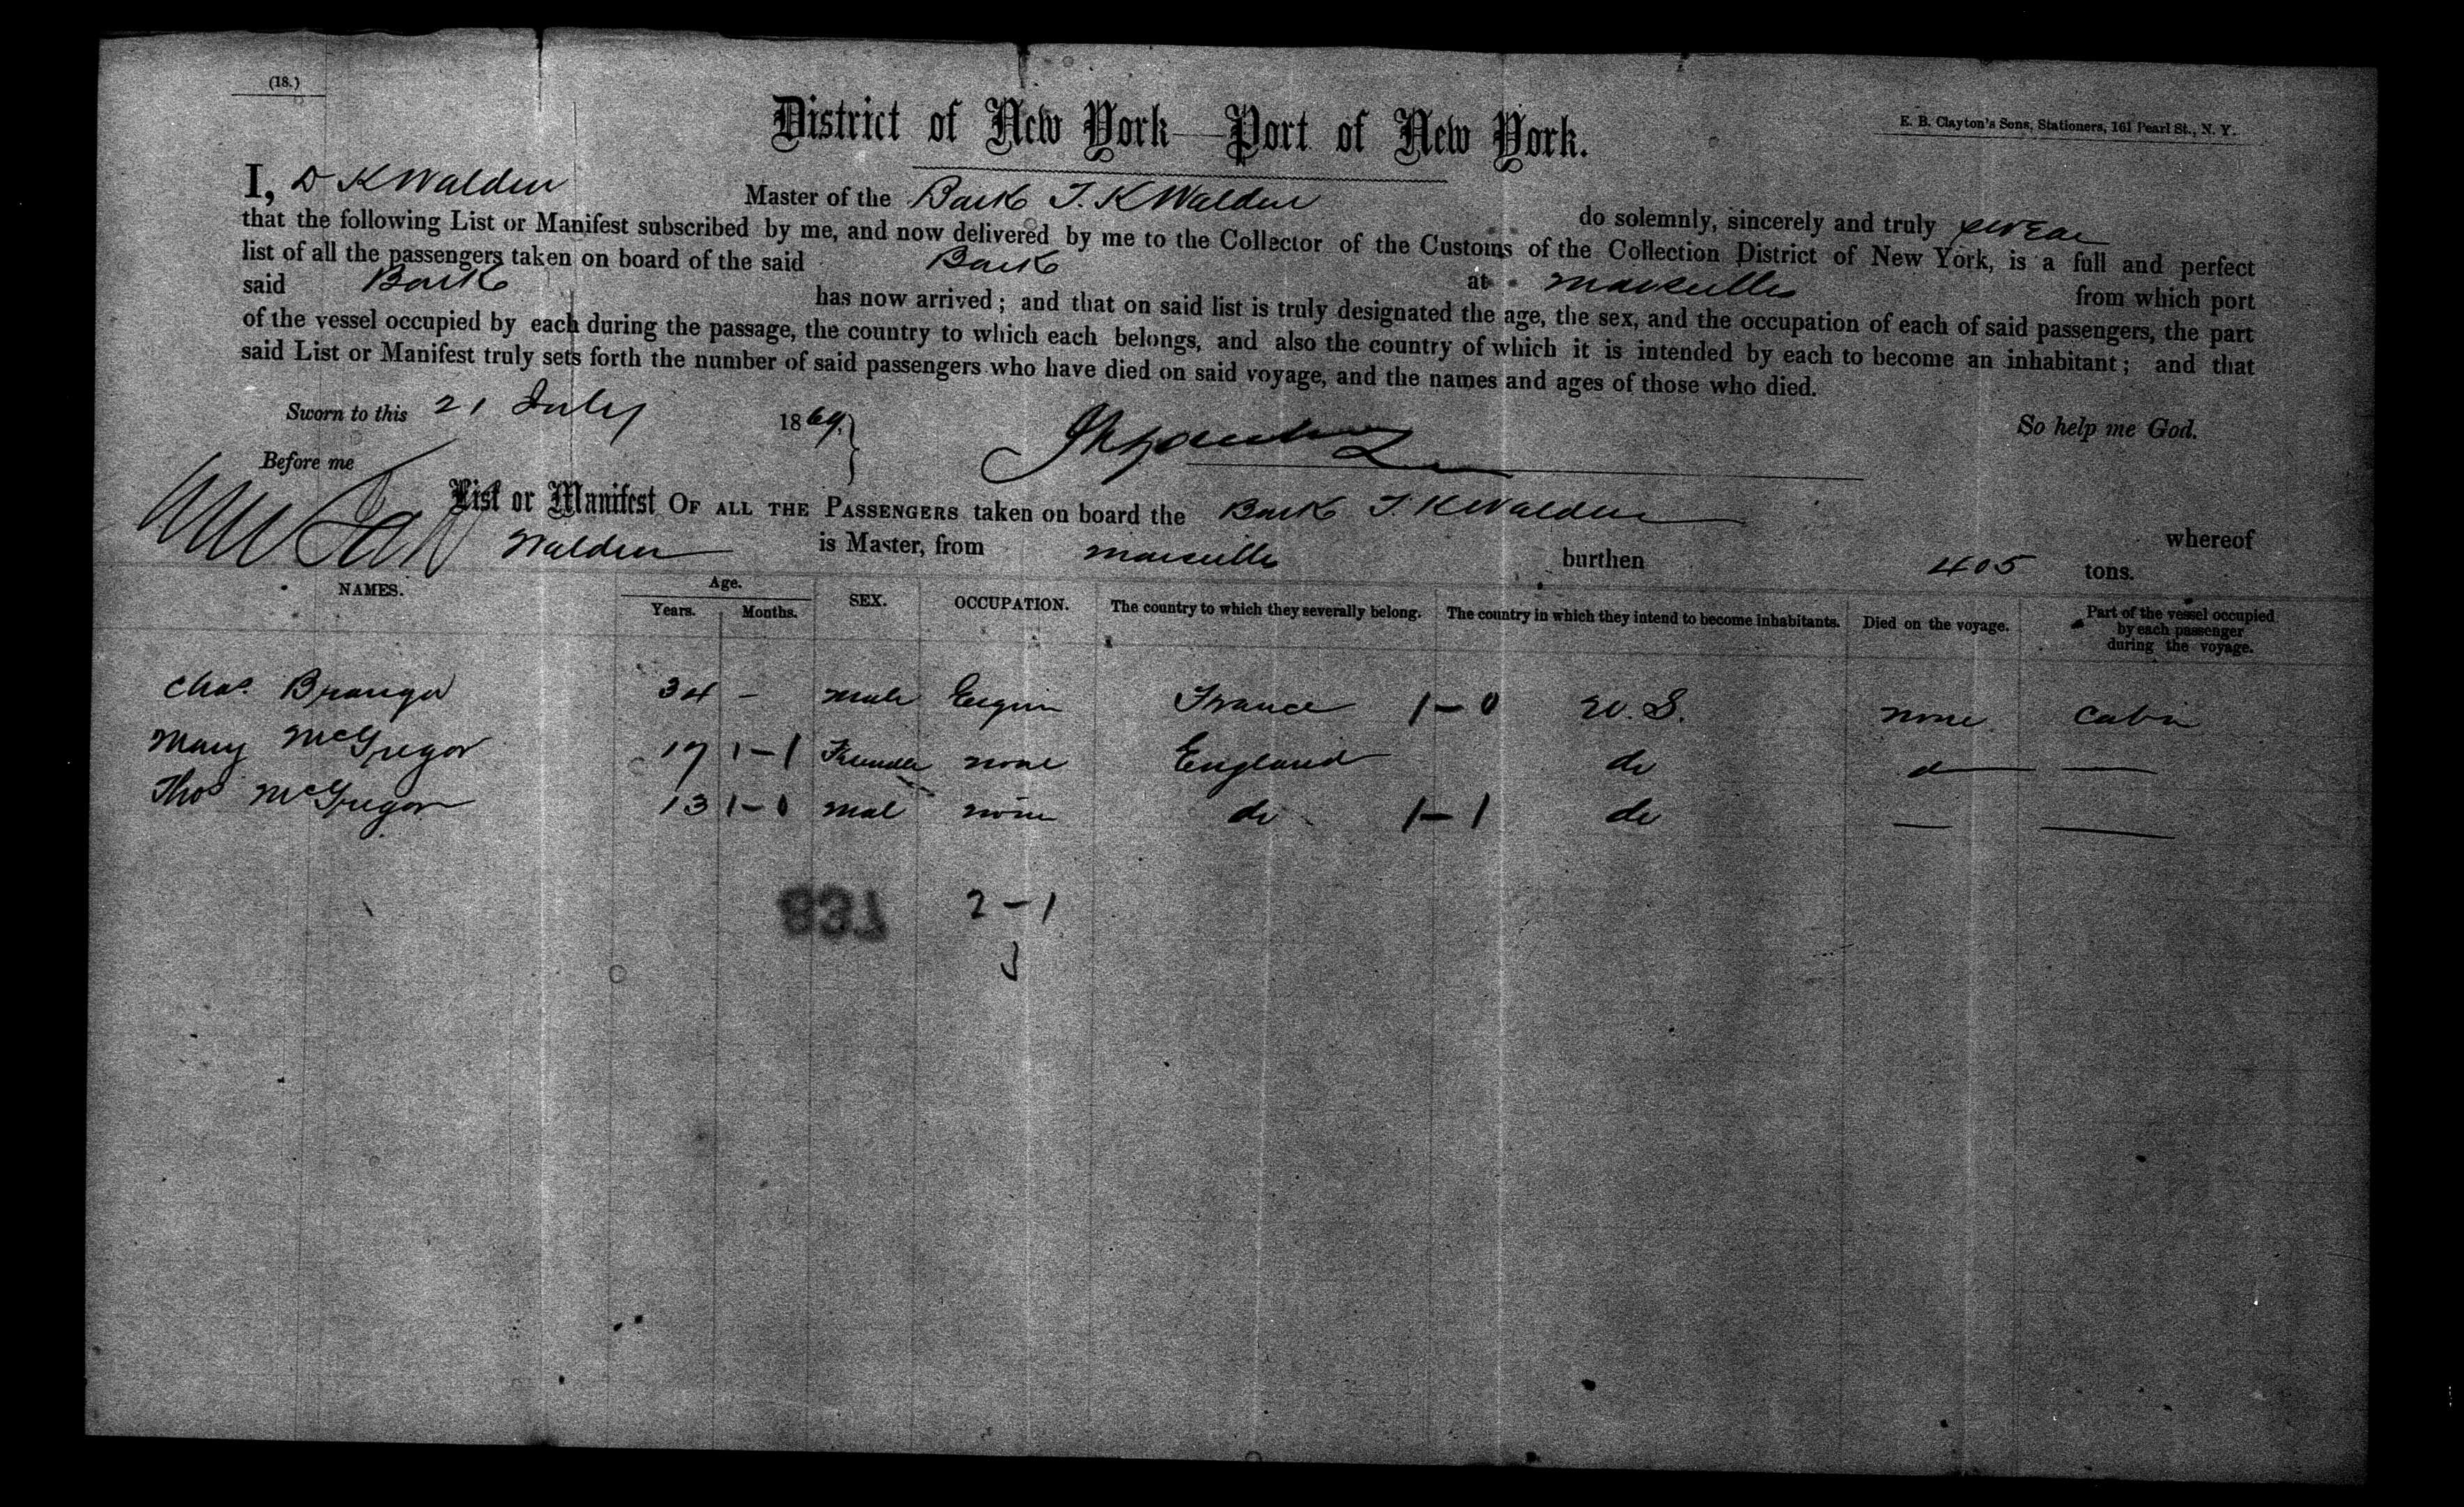 (18.)
District of New York—Port of New York.
E. B. Clayton's Sons, Stationers, 161 Pearl St., N. Y.
I, D K Walden Master of the Bark T. K Walden do solemnly, sincerely and truly swear
that the following List or Manifest subscribed by me, and now delivered by me to the Collector of the Customs of the Collection District of New York, is a full and perfect
list of all the passengers taken on board of the said Bark at Marseilles from which port
said Bark has now arrived; and that on said list is truly designated the age, the sex, and the occupation of each of said passengers, the part
of the vessel occupied by each during the passage, the country to which each belongs, and also the country of which it is intended by each to become an inhabitant; and that
said List or Manifest truly sets forth the number of said passengers who have died on said voyage, and the names and ages of those who died.
Sworn to this 21 July 1869. So help me God.
Before me
List or Manifest OF ALL THE PASSENGERS taken on board the Bark T. K Walden whereof
Walden is Master, from Marseilles burthen 405 tons.
NAMES. Age. Years. Months. SEX. OCCUPATION. The country to which they severally belong. The country in which they intend to become inhabitants. Died on the voyage. Part of the vessel occupied by each passenger during the voyage.
Chas. 34 - Male France 1-0 U. S. none Cabin
Mary McGregor 17 1-1 Female none England do d
Thos McGregor 13 1-0 Mal none do 1-1 do
837 2-1
3